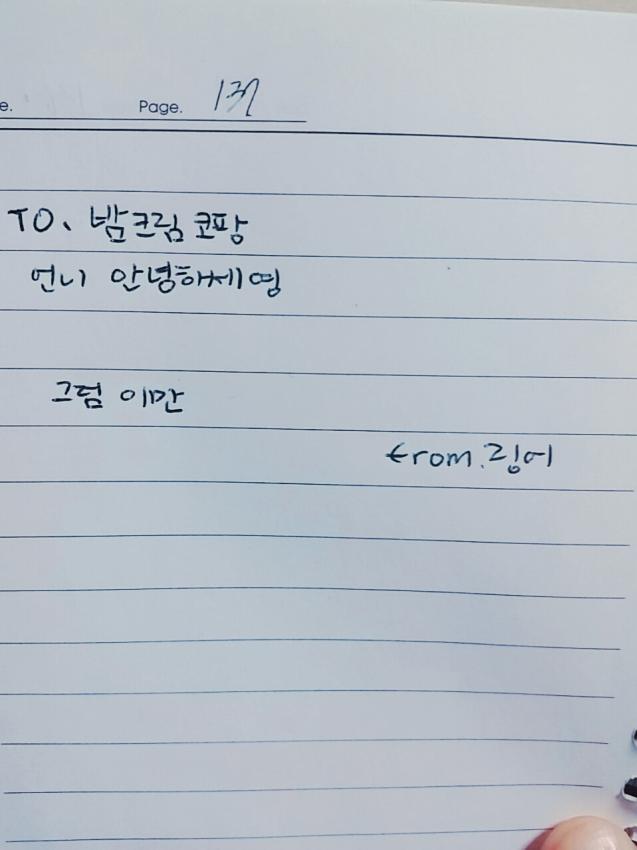 e.
Page. 137
TO. 밤크림 코팡
언니 안녕하세영
그럼 이만
from. 링어